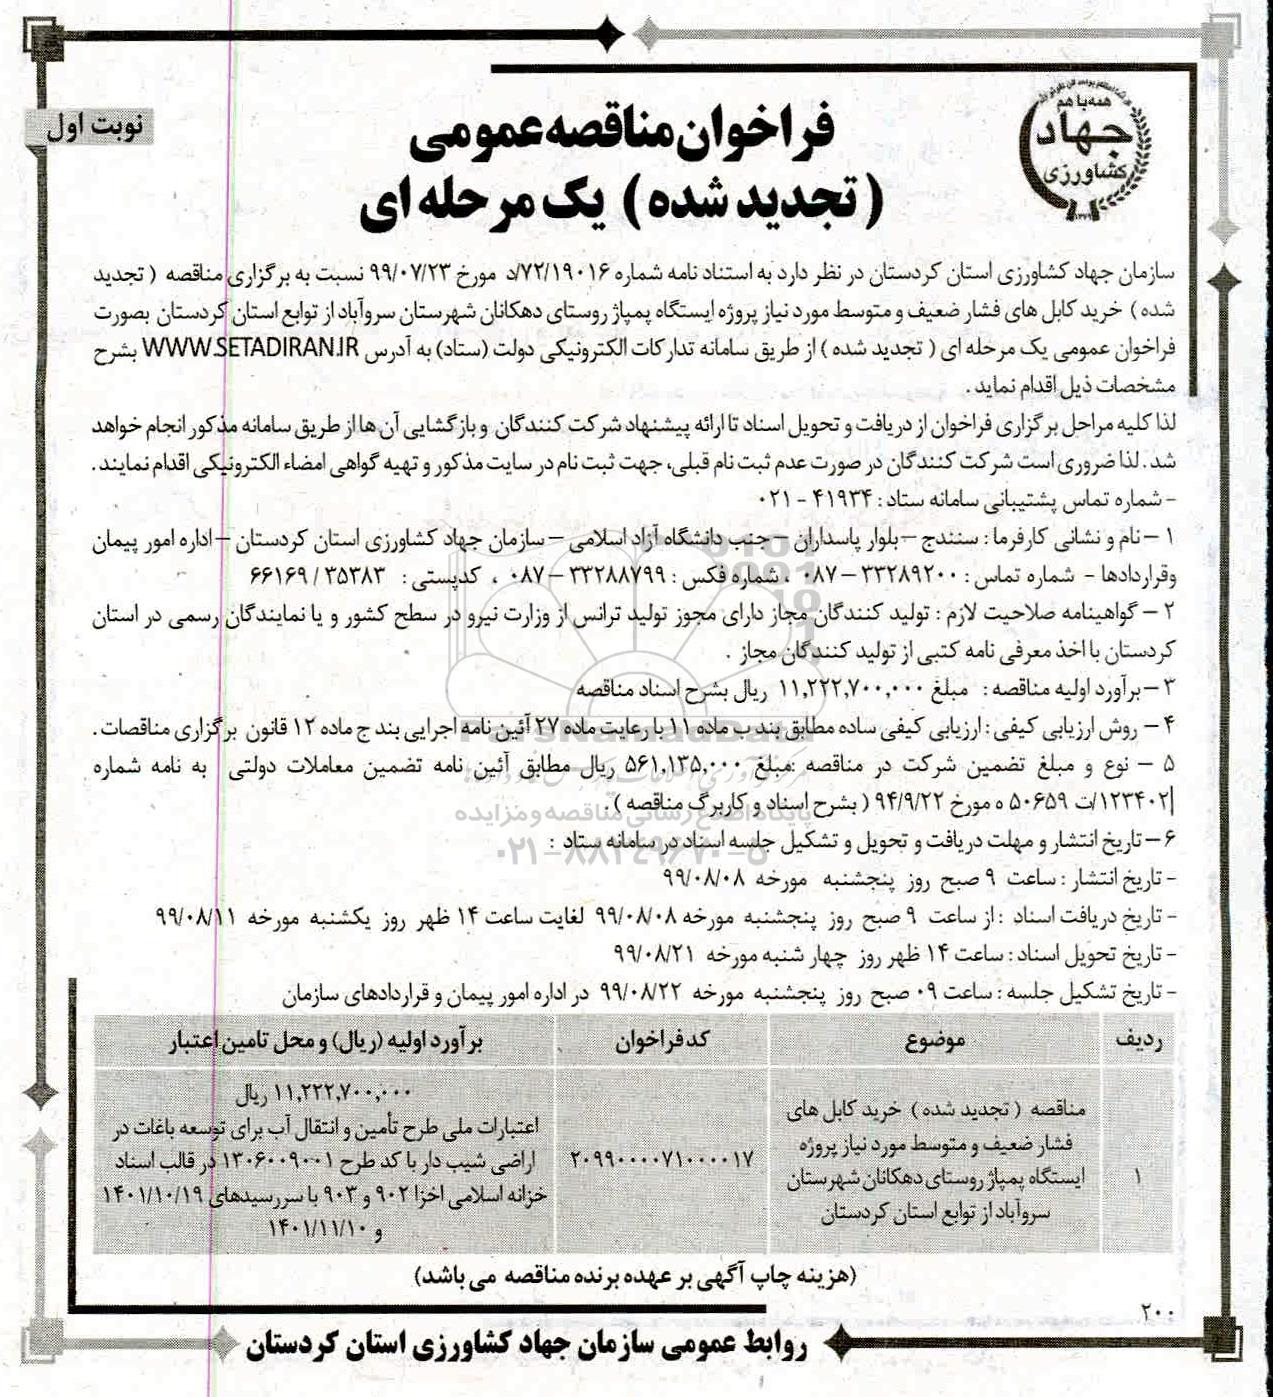 همه با هم
جهاد
کشاورزی
۱۳۷۹
نوبت اول
فراخوان مناقصه عمومی
(تجدید شده) یک مرحله ای
سازمان جهاد کشاورزی استان کردستان در نظر دارد به استناد نامه شماره ۷۲/۱۹۰۱۶/د مورخ ۹۹/۰۷/۲۳ نسبت به برگزاری مناقصه (تجدید
شده) خرید کابل های فشار ضعیف و متوسط مورد نیاز پروژه ایستگاه پمپاژ روستای دهکانان شهرستان سروآباد از توابع استان کردستان بصورت
فراخوان عمومی یک مرحله ای (تجدید شده) از طریق سامانه تدارکات الکترونیکی دولت (ستاد) به آدرس WWW.SETADIRAN.IR بشرح
مشخصات ذیل اقدام نماید.
لذا کلیه مراحل برگزاری فراخوان از دریافت و تحویل اسناد تا ارائه پیشنهاد شرکت کنندگان و بازگشایی آن ها از طریق سامانه مذکور انجام خواهد
شد. لذا ضروری است شرکت کنندگان در صورت عدم ثبت نام قبلی، جهت ثبت نام در سایت مذکور و تهیه گواهی امضاء الکترونیکی اقدام نمایند.
- شماره تماس پشتیبانی سامانه ستاد : ۴۱۹۳۴ - ۰۲۱
۱ – نام و نشانی کارفرما : سنندج – بلوار پاسداران – جنب دانشگاه آزاد اسلامی – سازمان جهاد کشاورزی استان کردستان – اداره امور پیمان
وقراردادها - شماره تماس : ۳۳۲۸۹۲۰۰ – ۰۸۷ ، شماره فکس : ۳۳۲۸۸۷۹۹ – ۰۸۷ ، کدپستی : ۳۵۳۸۳ / ۶۶۱۶۹
۲ – گواهینامه صلاحیت لازم : تولید کنندگان مجاز دارای مجوز تولید ترانس از وزارت نیرو در سطح کشور و یا نمایندگان رسمی در استان
کردستان با اخذ معرفی نامه کتبی از تولید کنندگان مجاز .
۳ – برآورد اولیه مناقصه : مبلغ ۱۱,۲۲۲,۷۰۰,۰۰۰ ریال بشرح اسناد مناقصه
۴ – روش ارزیابی کیفی : ارزیابی کیفی ساده مطابق بند ب ماده ۱۱ با رعایت ماده ۲۷ آئین نامه اجرایی بند ج ماده ۱۲ قانون برگزاری مناقصات.
۵ – نوع و مبلغ تضمین شرکت در مناقصه :مبلغ ۵۶۱,۱۳۵,۰۰۰ ریال مطابق آئین نامه تضمین معاملات دولتی به نامه شماره
۱۲۳۴۰۲/ت ۵۰۶۵۹ ه مورخ ۹۴/۹/۲۲ (بشرح اسناد و کاربرگ مناقصه).
۶ – تاریخ انتشار و مهلت دریافت و تحویل و تشکیل جلسه اسناد در سامانه ستاد :
- تاریخ انتشار : ساعت ۹ صبح روز پنجشنبه مورخه ۹۹/۰۸/۰۸
- تاریخ دریافت اسناد : از ساعت ۹ صبح روز پنجشنبه مورخه ۹۹/۰۸/۰۸ لغایت ساعت ۱۴ ظهر روز یکشنبه مورخه ۹۹/۰۸/۱۱
- تاریخ تحویل اسناد : ساعت ۱۴ ظهر روز چهار شنبه مورخه ۹۹/۰۸/۲۱
- تاریخ تشکیل جلسه : ساعت ۰۹ صبح روز پنجشنبه مورخه ۹۹/۰۸/۲۲ در اداره امور پیمان و قراردادهای سازمان
ردیف موضوع کدفراخوان برآورد اولیه (ریال) و محل تامین اعتبار
۱
مناقصه (تجدید شده) خرید کابل های
فشار ضعیف و متوسط مورد نیاز پروژه
ایستگاه پمپاژ روستای دهکانان شهرستان
سروآباد از توابع استان کردستان
۲۰۹۹۰۰۰۰۷۱۰۰۰۰۱۷
۱۱,۲۲۲,۷۰۰,۰۰۰ ریال
اعتبارات ملی طرح تأمین و انتقال آب برای توسعه باغات در
اراضی شیب دار با کد طرح ۱۳۰۶۰۰۹۰۰۱ در قالب اسناد
خزانه اسلامی اخزا ۹۰۲ و ۹۰۳ با سررسیدهای ۱۴۰۱/۱۰/۱۹
و ۱۴۰۱/۱۱/۱۰
(هزینه چاپ آگهی بر عهده برنده مناقصه می باشد)
۲۰۰
روابط عمومی سازمان جهاد کشاورزی استان کردستان
ParsNamadData
پایگاه اطلاع رسانی مناقصه و مزایده
۰۲۱-۸۸۳۴۹۶۷۰-۵